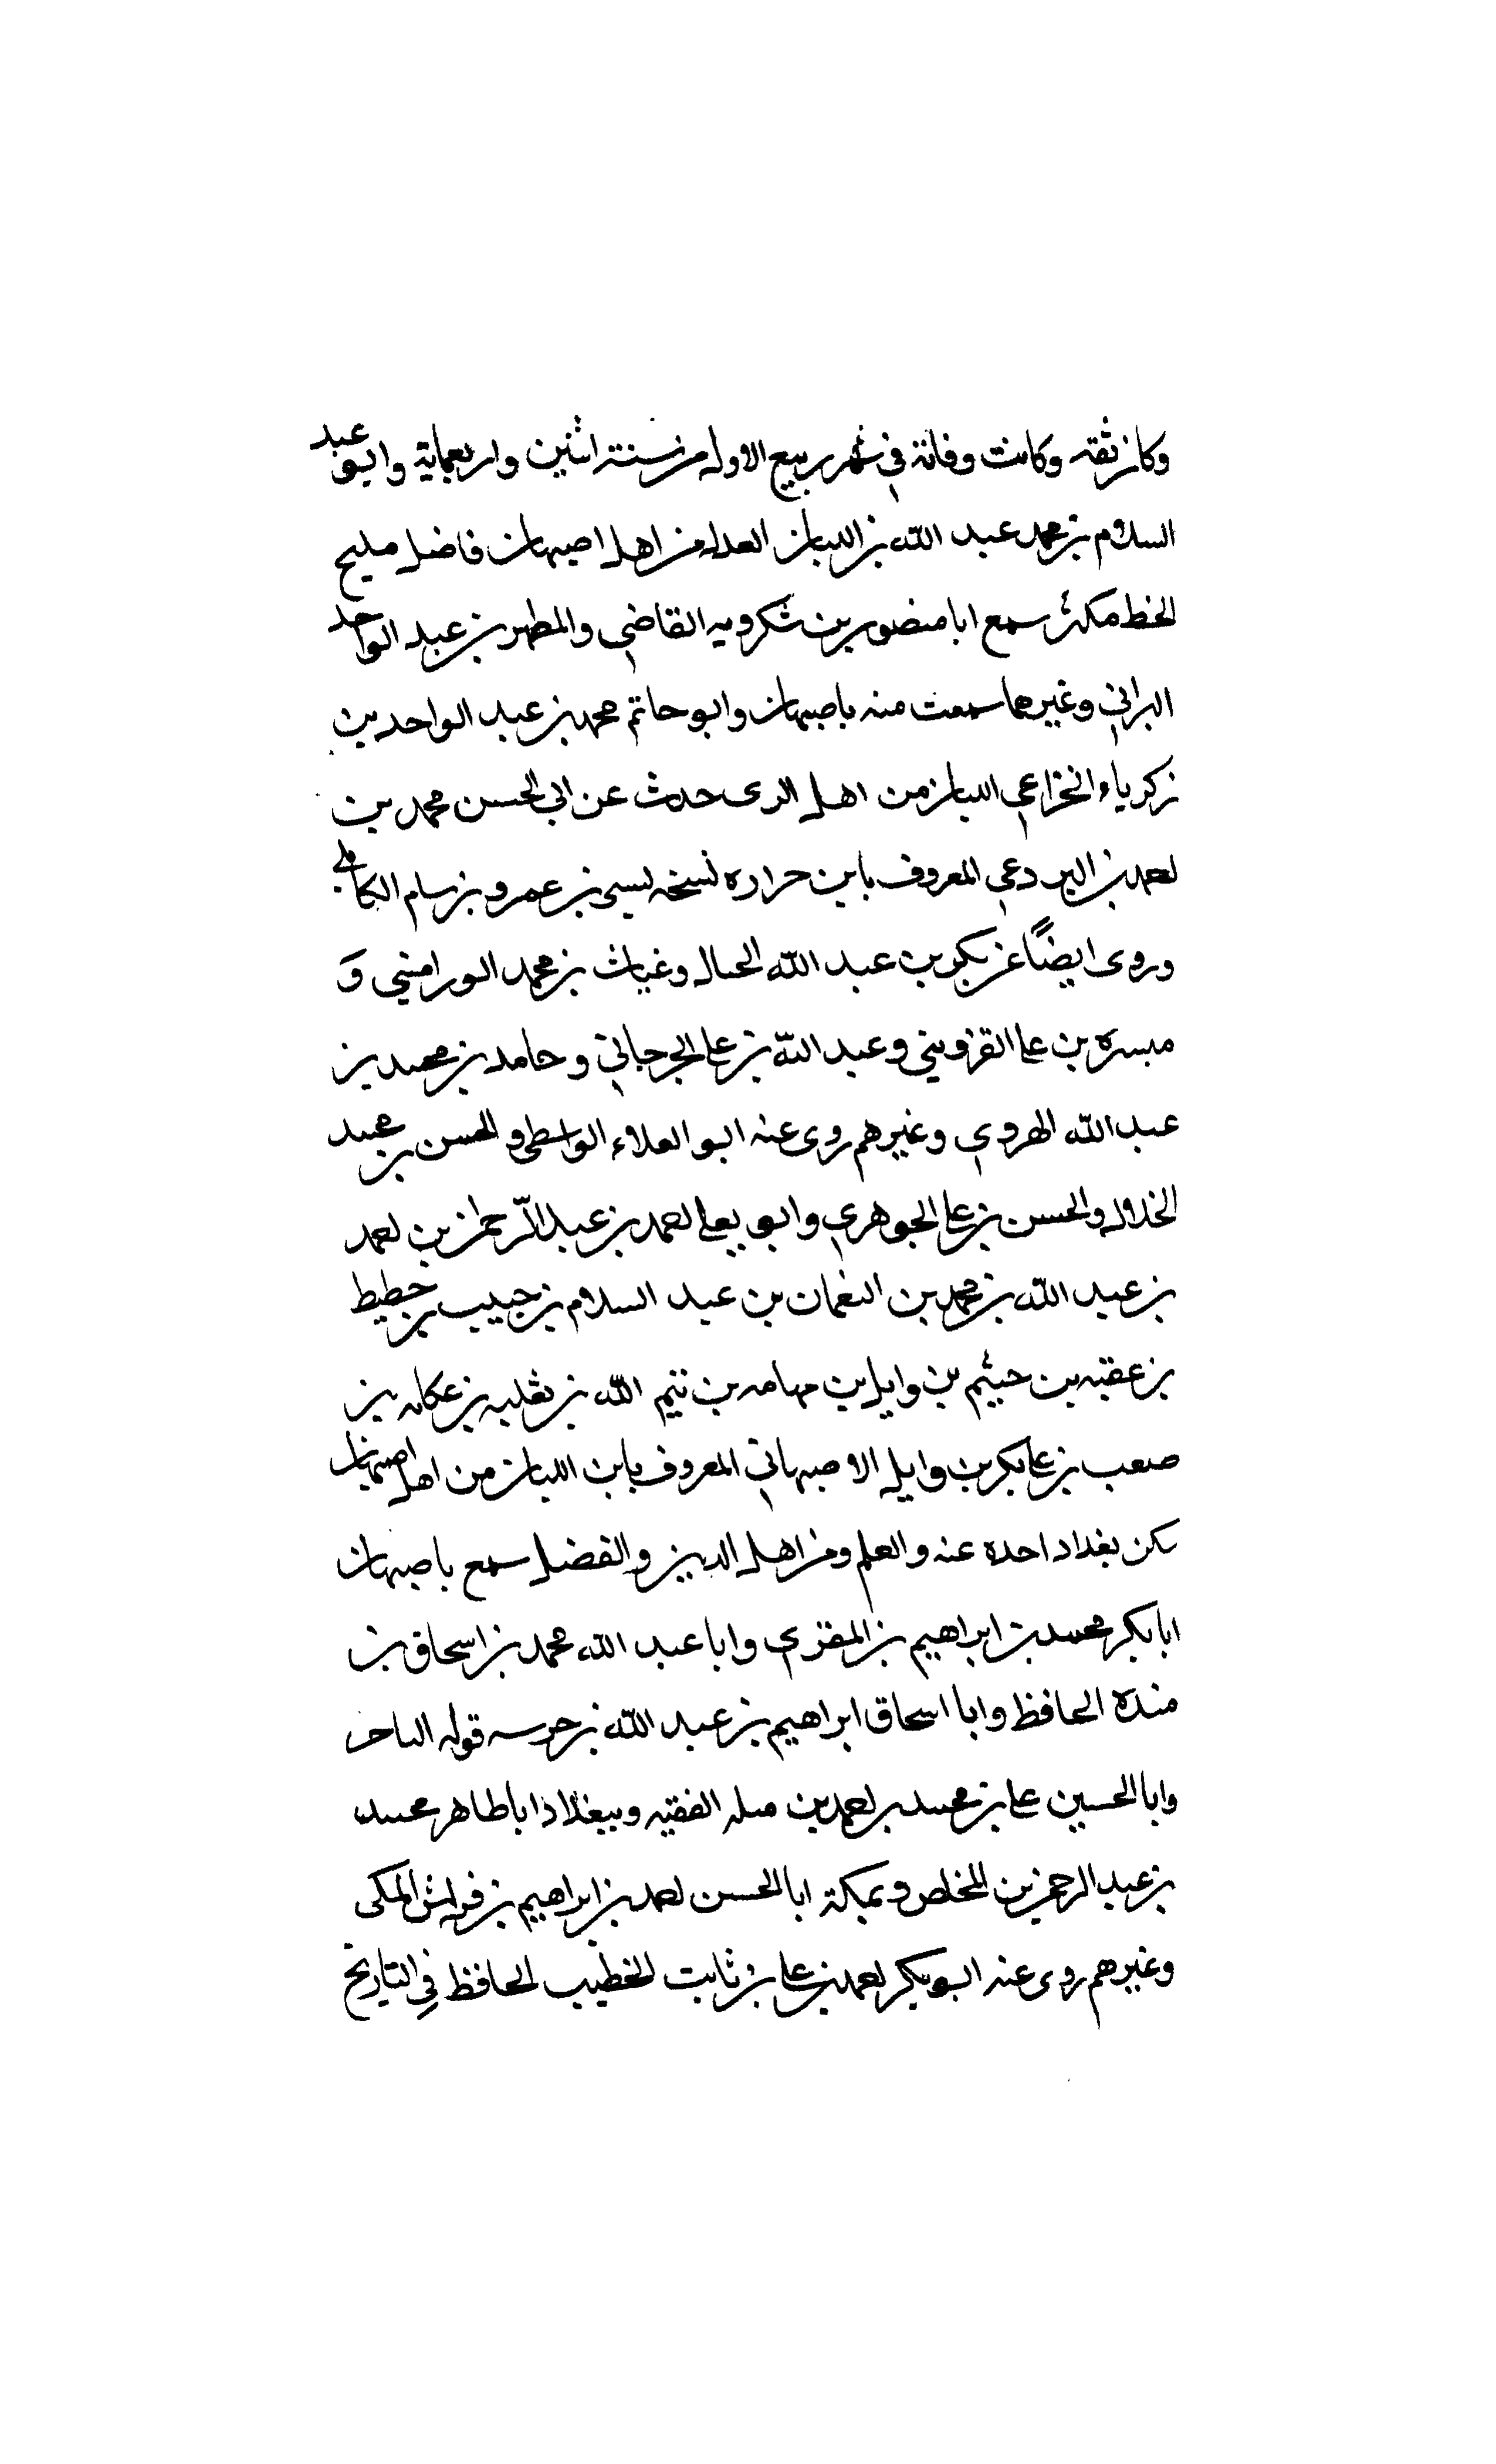 وكان ثقه وكانت وفاته في شهر ربيع الاول من سنة اثنين واربعماية وابو عبد
السلام بن محمد عبد الله بن اللبان العدل من اهل اصبهان فاضل مليح
الخط مكثر سمع ابا منصور بن شكرويه القاضي والمطهر بن عبد الواحد
البراني وغيرهما سمعت منه باصبهان وابو حاتم محمد بن عبد الواحد بن
زكرياء الخزاعي اللبان من اهل الري حدث عن ابي الحسن محمد بن
احمد بن البردعي المعروف بابن حراره نسخه بن عمرو بن سام الكابلي
وروى ايضًا عن بكر بن عبد الله الحبال وغياث بن محمد الوراميني وَ
ميسرة بن علي القزويني وعبد الله بن علي الجرجاني وحامد بن محمد بن
عبد الله الهروي وغيرهم روى عنه ابو العلاء الواسطي والحسن بن محمد
الخلال والحسن بن علي الجوهري وابو يعلى احمد بن عبد الرحمن بن احمد
بن عبد الله بن محمد بن النعمان بن عبد السلام بن حبيب بن حطيط
بن عقبه بن خيثم بن وايل بن مهامه بن تيم الله بن ثعلبه بن عكابه بن
صعب بن علي بكر بن وايل الاصبهاني المعروف بابن اللبان من اهل اصبهان
سكن بغداد احد اوعيه العلم ومن اهل الدين والفضل سمع باصبهان
ابا بكر محمد بن ابراهيم بن المقري وابا عبد الله محمد بن اسحاق بن
منده الحافظ وابا اسحاق ابراهيم بن عبد الله بن خرشيد قوله التاجر
وابا الحسين علي بن محمد بن احمد بن ميله الفقيه وببغداد ابا طاهر محمد
بن عبد الرحمن بن المخلص وبمكة ابا الحسن احمد بن ابراهيم بن فراس المكي
وغيرهم روى عنه ابو بكر احمد بن علي بن ثابت الخطيب الحافظ في التاريخ